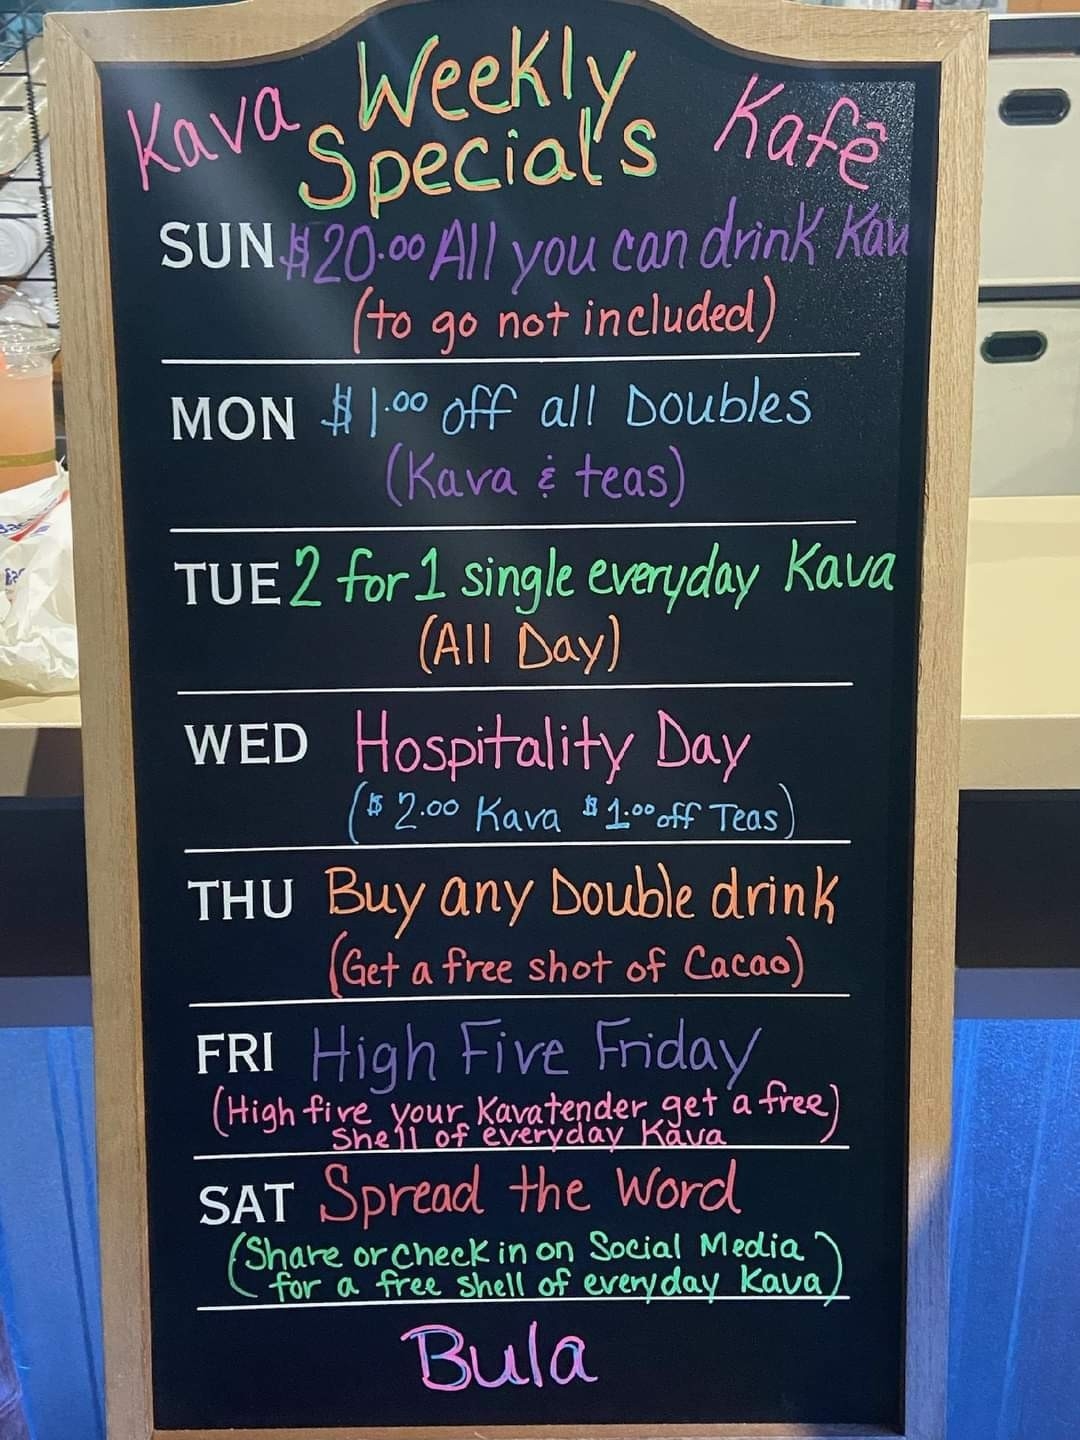 Kava Weekly Kafê
Special's
SUN $20.00 All you can drink Kav
(to go not included)
MON $1.00 off all Doubles
(Kava & teas)
TUE 2 for 1 single everyday Kava
(All Day)
WED Hospitality Day
($2.00 Kava $1.00 off Teas)
THU Buy any Double drink
(Get a free shot of Cacao)
FRI High Five Friday
(High five your Kavatender get a free)
shell of everyday Kava
SAT Spread the Word
(Share or check in on Social Media
for a free shell of everyday Kava)
Bula